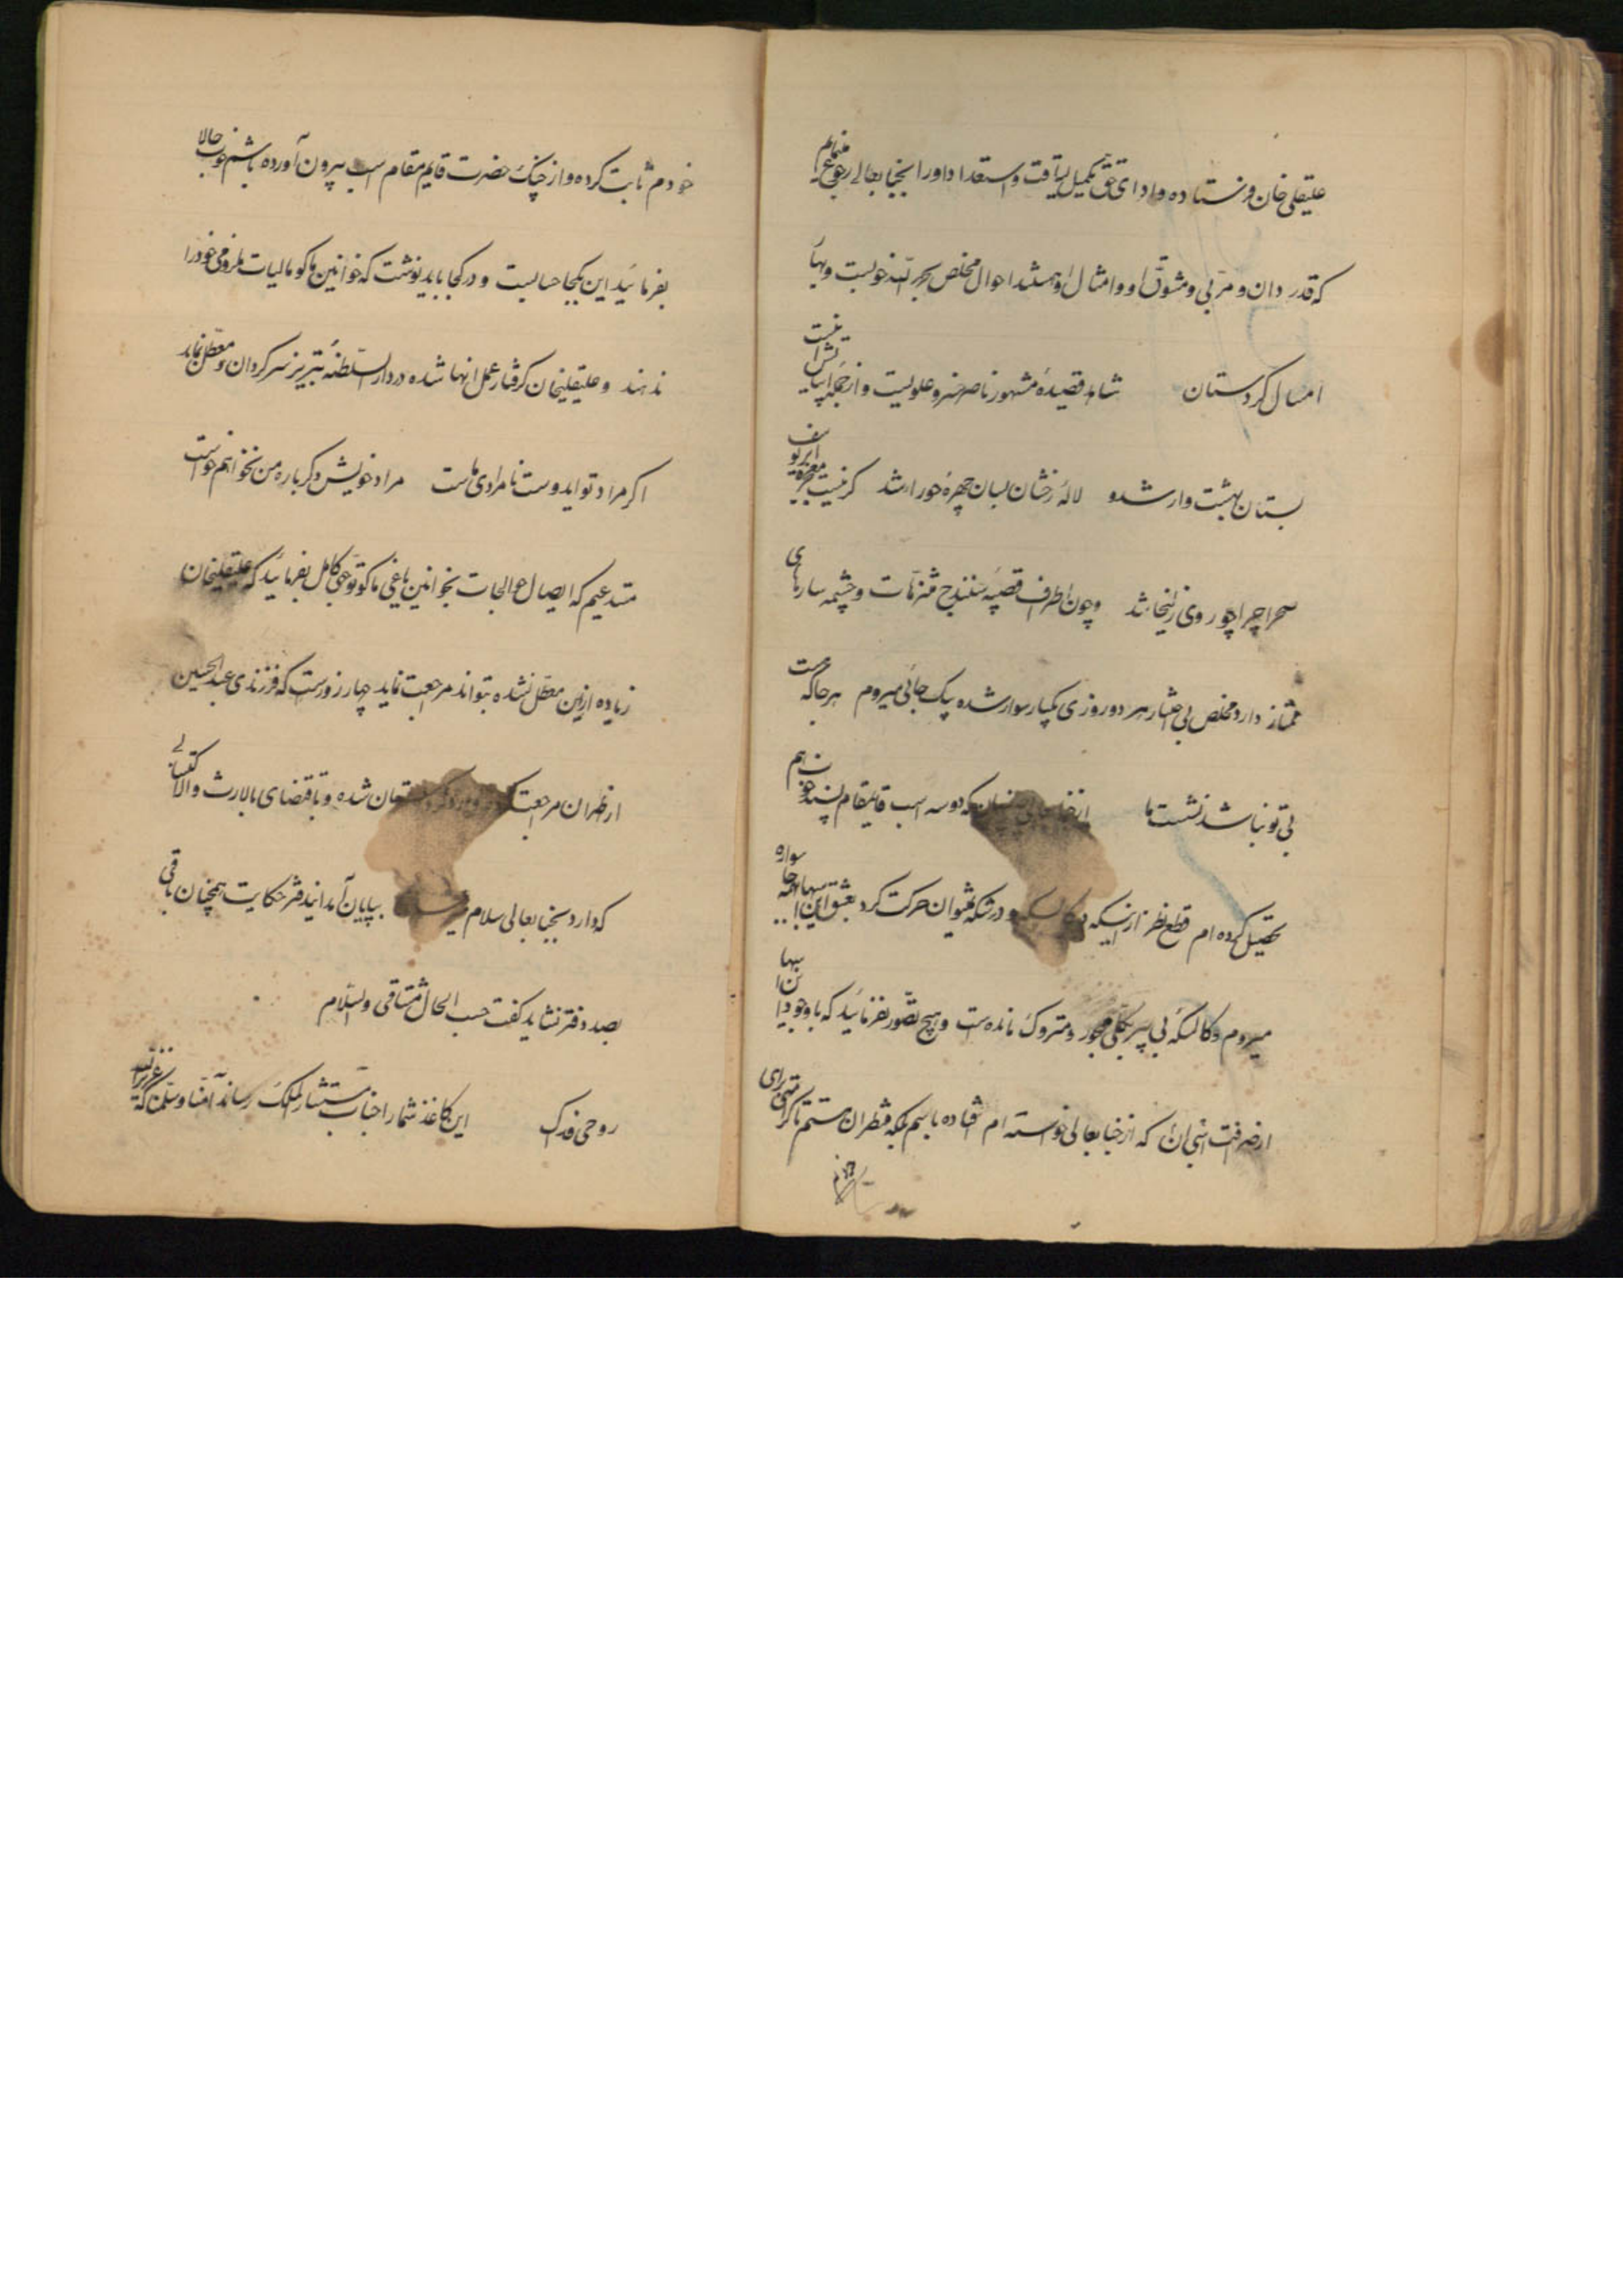 علیقلی خان فرستاده و ادای حق تکمیل لیاقت و استعداد او را بجنابعالی رجوع مینمایم
که قدردان و مربی و مشوق او و امثال او هستند احوال مخلص بحمد الله خوبست و بهار
امسال کردستان شاهد قصیده مشهور ناصر خسرو علویست و از جمله ابیاتش اینست
بستان بهشت وار شد و لاله رخشان بسان چهره حورا شد گر نیست ابر معجزه یوسف
صحرا چرا چو روی زلیخا شد و چون اطراف قصبه سنندج متنزهات و چشمه سارهای
ممتاز دارد مخلص بی اختیار هر دو روزی یکبار سوار شده بیک جائی میروم هر جا که هست
بی تو نباشد نشست ما از که دو سه اسب قایمقام پسند خوب هم
تحصیل کرده ام قطع نظر از اینکه کالسکه و درشکه نمیتوان حرکت کرد بعشق این اسبها همه جا سواره
میروم و کالسکه بی پیر بکلی مهجور و متروک مانده است و هیچ تصور نفرمائید که با وجود این اسبها
از صرافت اسبی که از جنابعالی خواسته ام افتاده باشم بلکه منتظران هستم تا کرامتی برای
خودم ثابت کرده و از چنگ حضرت قایم مقام اسب بیرون آورده باشم خوب حالا
بفرمائید این یکجا حسابست و در کجا باید نوشت که خوانین ماکو مالیات ملزومی خود را
ندهند و علیقلیخان گرفتار عمل آنها شده در دار السلطنه تبریز سرگردان و معطل بماند
اگر مراد تو ایدوست نامرادی ماست مراد خویش دگر باره من نخواهم خواست
مستدعیم که ایصال حوالجات بخوانین یاغی ماکو توجهی کامل بفرمائید که علیقلیخان
زیاده از این معطل نشده بتواند مراجعت نماید چهار روز است که فرزندی عبدالحسین
از طهران مراجعت کرده وارد کردستان شده و باقتضای بالارث و الاکتسابی
که دارد بجنابعالی سلام میرساند بپایان آمد این دفتر حکایت همچنان باقی
بصد دفتر نشاید گفت حسب الحال مشتاقی والسلام
روحی فداک این کاغذ شما را جناب مستشار الملک رساند آمنا و سلمنا که